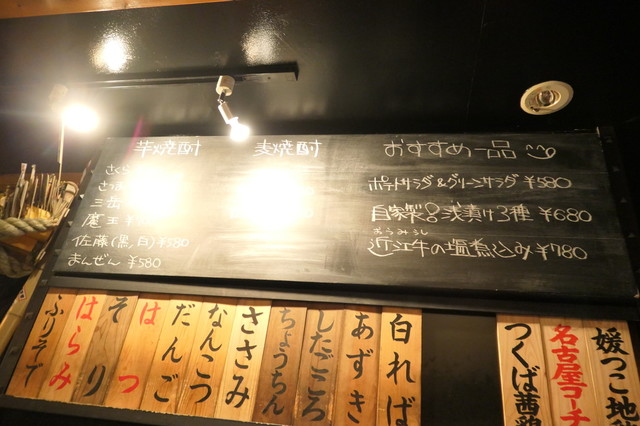 芋焼酎
三岳
魔王 ¥
佐藤(黒,白)¥580
まんぜん ¥580
麦焼酎
おすすめ一品
ポテトサラダ&グリーンサラダ ¥580
自家製 浅漬け3種 ¥680
おうみうし
近江牛の塩煮込み ¥780
白れば
あずき
したごころ
ちょうちん
ささみ
なんこつ
だんご
はつ
そり
はらみ
ふりそで
媛っこ地
名古屋コーチ
つくば茜鶏